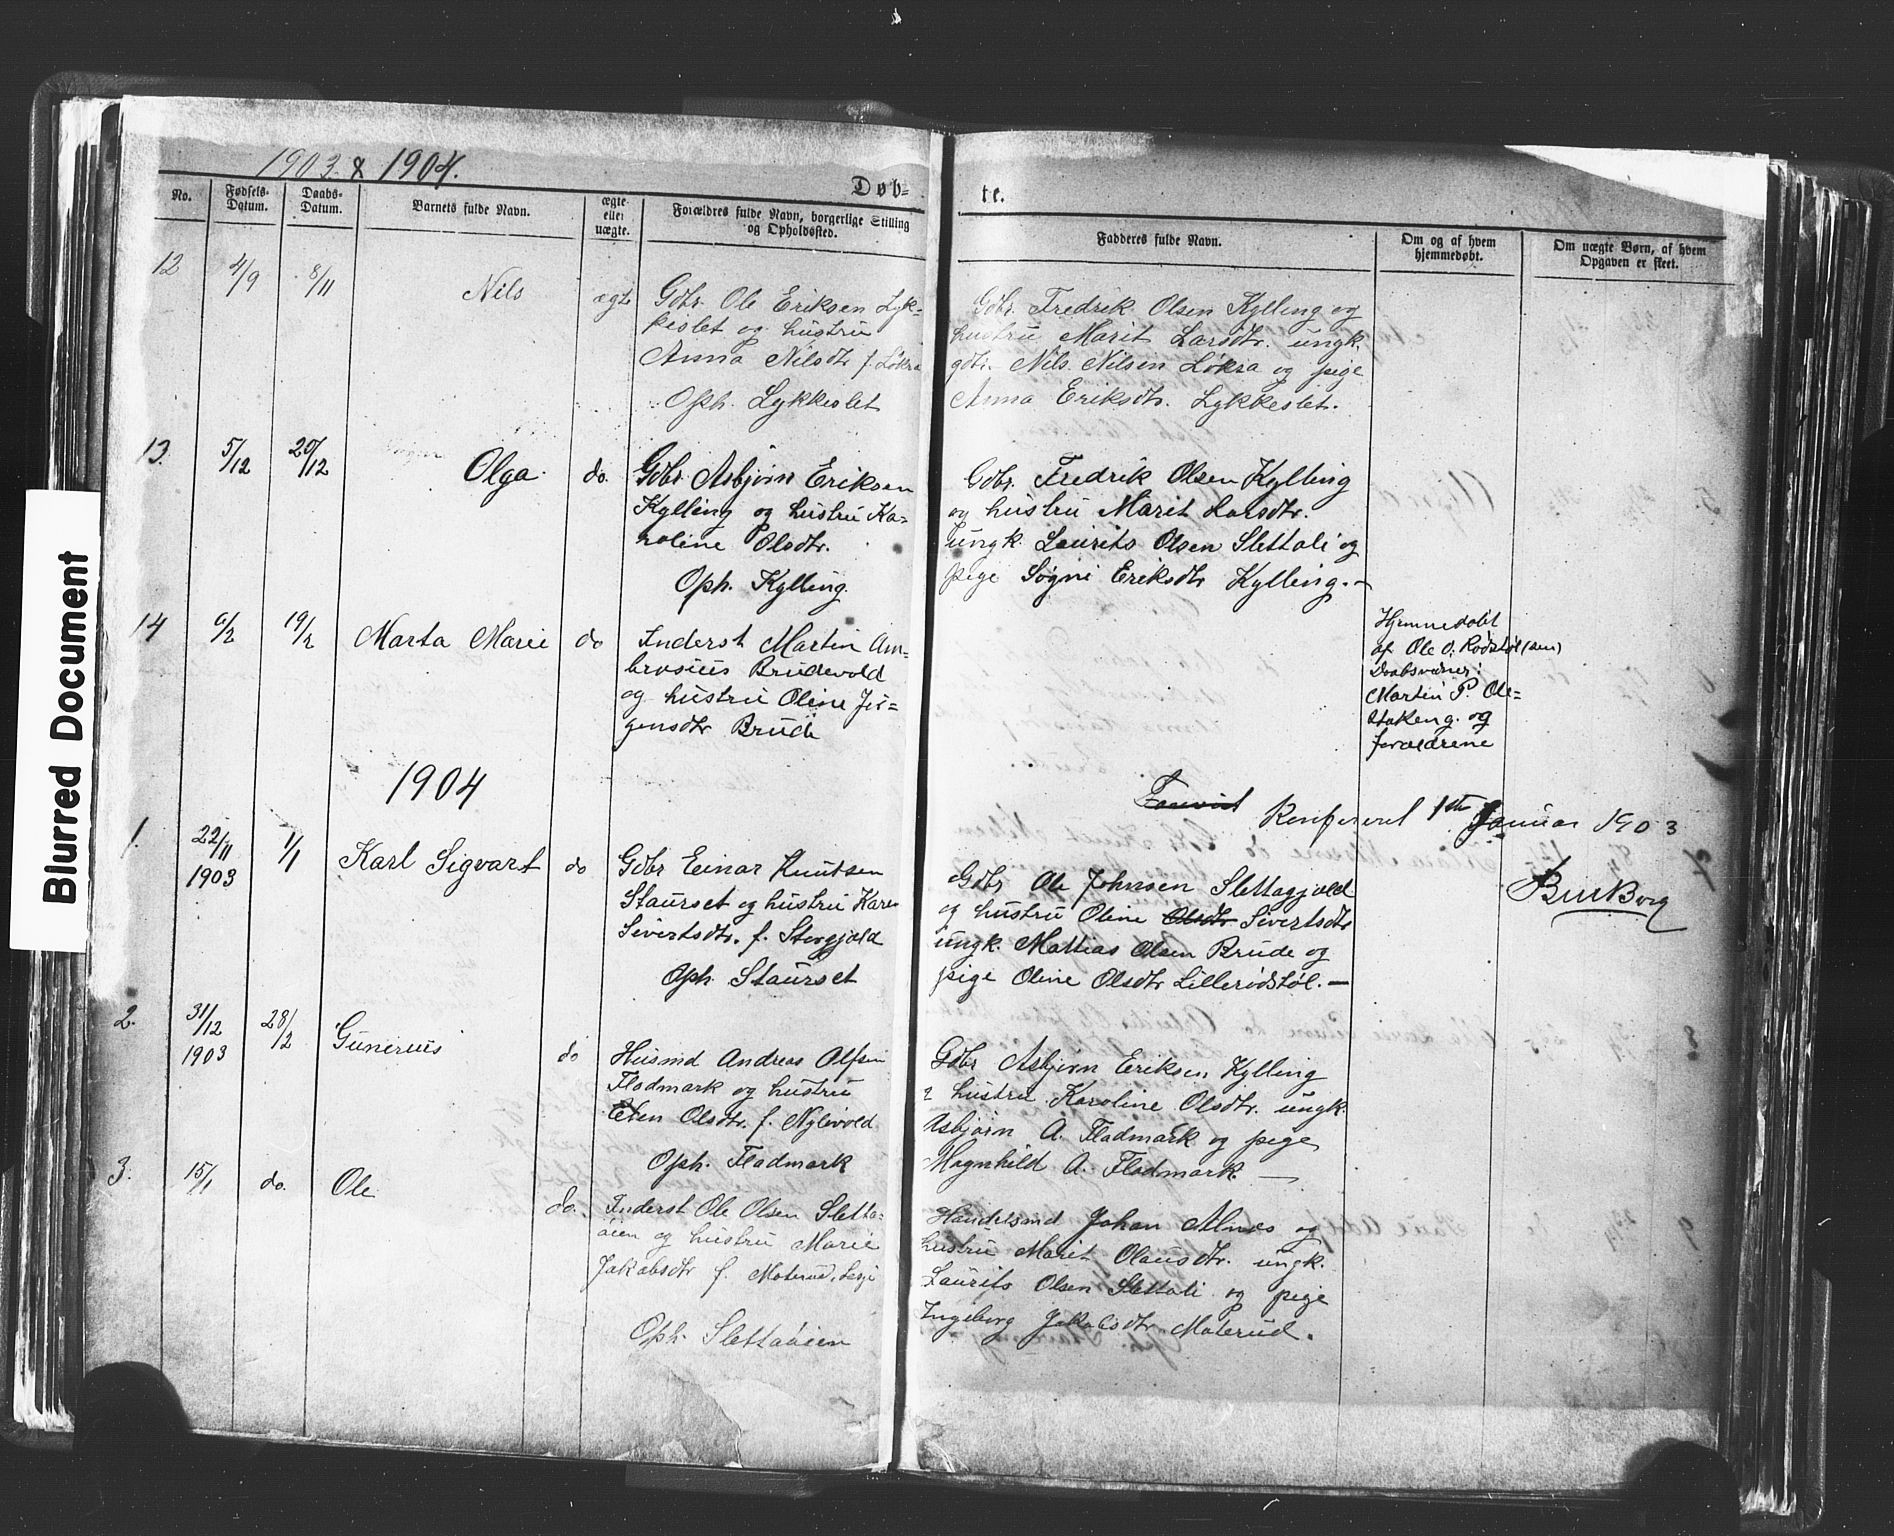 1903 & 1904.
Døb=
te.
No.
Fødsels-
Datum.
Daabs-
Datum.
Barnets fulde Navn.
ægte
eller
uægte.
Forældres fulde Navn, borgerlige Stilling
og Opholdssted.
Fadderes fulde Navn.
Om og af hvem
hjemmedøbt.
Om uægte Børn, af hvem
Opgaven er skeet.
12
4/9
8/11
Nils
ægte
Gdbr. Ole Eriksen Lyk-
keslet og hustru
Anna Nilsdtr f. Løkra
Oph. Lykkeslet
Gdbr. Fredrik Olsen Kylling og
hustru Marit Larsdtr. ungk.
gdbr. Nils Nilsen Løkra og pige
Anna Eriksdtr. Lykkeslet.
13.
5/12
20/12
Olga
do.
Gdbr. Asbjørn Eriksen
Kylling og hustru Ka=
roline Olsdtr.
Oph. Kylling.
Gdbr. Fredrik Olsen Kylling
og hustru Marit Larsdtr.
ungk. Laurits Olsen Slettali og
pige Søgni Eriksdtr Kylling.-
14
6/2
19/2
Marta Marie
do
Inderst Martin Am=
brosius Brudevold
og hustru Oline Jør=
gensdtr Brude
Hjemmedøbt
af Ole O. Rødstøl (sen)
Daabsvidner:
Martin P. Ole=
staken g. og
forældrene
1904
Konfereret 1ste Januar 1903
1.
22/11
1903
1/1
Karl Sigvart
do
Gdbr Einar Knutsen
Staurset og hustru Karen
Sivertsdtr. f. Storgjald
Oph. Staurset
Gdbr Ole Johnsen Slettagjald
og hustru Oline Olsdtr Sivertsdtr
ungk. Mattias Olsen Brude og
pige Oline Olsdtr Lillerødstøl. —
BuBorg
2.
31/12
1903
28/2
Gunerius
do
Husmd Andreas Alfsen
Fladmark og hustru
Eten Olsdtr. f. Nylivold
Oph. Fladmark
Gdbr Asbjørn Eriksen Kylling
& hustru Karoline Olsdtr. ungk.
Asbjørn A. Fladmark og pige
Magnhild A. Fladmark. —
3.
15/1
do.
Ole
do.
Inderst Ole Olsen Sletta=
øien og hustru Marie
Jakobsdtr f. Moterud, Lesje
Oph. Slettaøien
Handelsmd Johan Alnæs og
hustru Marit Olausdtr. ungk.
Laurits Olsen Slettali og pige
Ingeborg Jakobsdtr Moterud.
Blurred Document